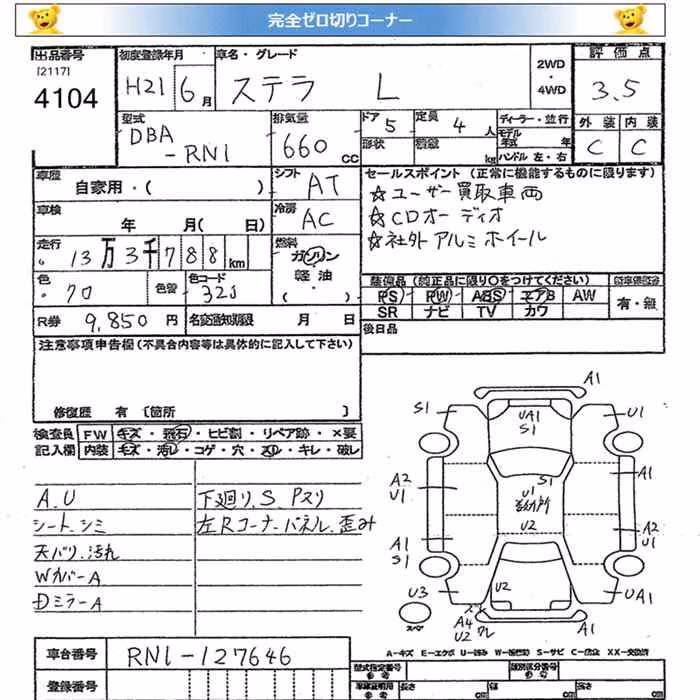 完全ゼロ切りコーナー
出品番号 初度登録年月 車名・グレード 2WD・4WD 評価点
[2117]
4104 H21 6月 ステラ L 3.5
型式 排気量 ドア 5 定員 4人 ディーラー・並行 外装 内装
DBA-RN1 660cc 形状 積載 kg モデル年式 年 ハンドル 左・右 C C
車歴 自家用・( ) シフト AT セールスポイント (正常に機能するものに限ります)
☆ユーザー買取車両
車検 年 月( 日) 冷房 AC ☆CDオーディオ
☆社外アルミホイール
走行 13万3千788km 燃料 ガソリン
軽油
・( )
色 クロ 色替 色コード 32J 装備品 (純正品に限り〇をつけてください)
PS PW ABS エアB AW 有・無
R券 9,850円 名変通知期限 月 日 SR ナビ TV カワ
後日品
注意事項申告欄(不具合内容等は具体的に記入して下さい)
修復歴 有 [箇所 ]
検査員 FW キズ・飛石・ヒビ割・リペア跡・×要
記入欄 内装 キズ・汚レ・コゲ・穴・スレ・キレ・破レ
A.U 下廻り.S Pスリ
シート.シミ 左Rコーナーパネル.歪み
天バリ.汚れ
Wカバー A
Dミラー A
A1
S1 UA1 U1
S1
S1
A2 A1
U1 U1
U2 A2
U1
A1
S1
U3 U2 UA1
スペア A4 ワレ A1
U2
A-キズ E-エクボ U-凹み W-補修跡 S-サビ C-腐食 XX-交換済
車台番号 RN1-127646 型式指定番号 参考 類別区分番号 参考
登録番号 車庫証明用 参考 長さ cm 幅 cm 高さ cm